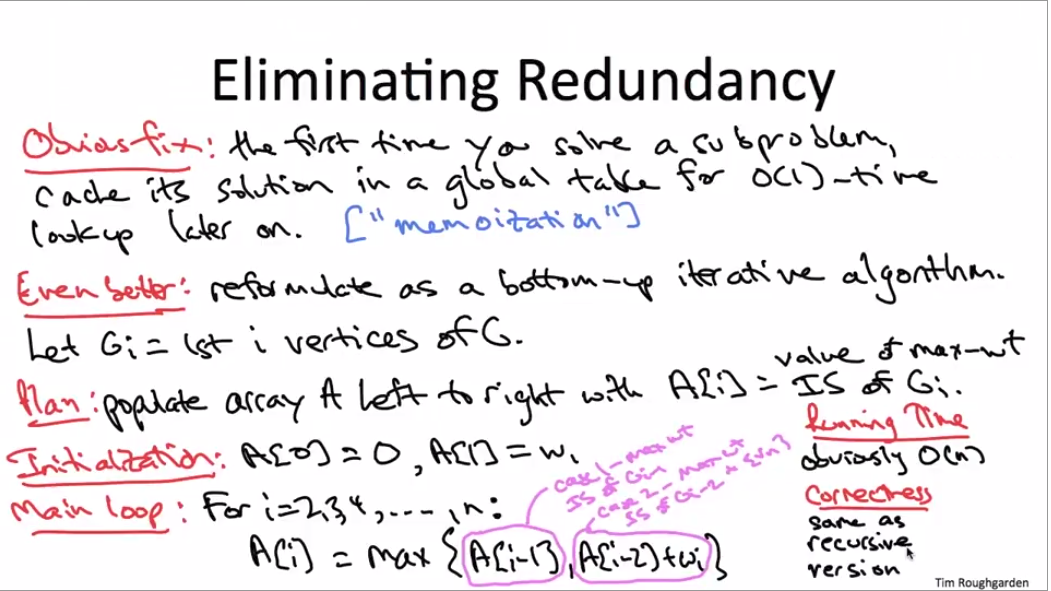 Eliminating Redundancy
Obvious fix: the first time you solve a subproblem,
cache its solution in a global table for O(1)-time
lookup later on. ["memoization"]
Even better: reformulate as a bottom-up iterative algorithm.
Let Gi = 1st i vertices of G.
Plan: populate array A left to right with A[i] = value of max-wt
IS of Gi.
Initialization: A[0] = 0, A[1] = w1
Main loop: For i=2,3,4,....,n:
A[i] = max {A[i-1], A[i-2]+wi}
case 1 - max wt
IS of Gi-1
case 2 - max-wt
IS of Gi-2 +
Running Time
obviously O(n)
Correctness
same as
recursive
version
Tim Roughgarden